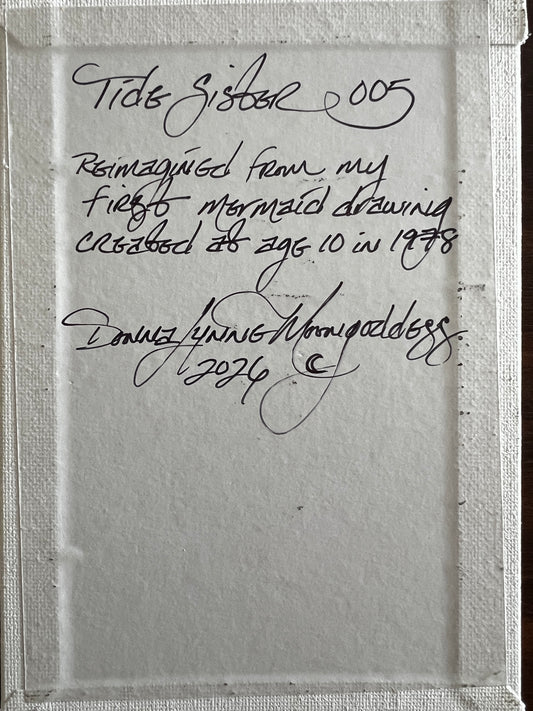 Tide Sister 005
Reimagined from my
first mermaid drawing
created at age 10 in 1978
Donna Lynne Moongoddess
2026 ☾